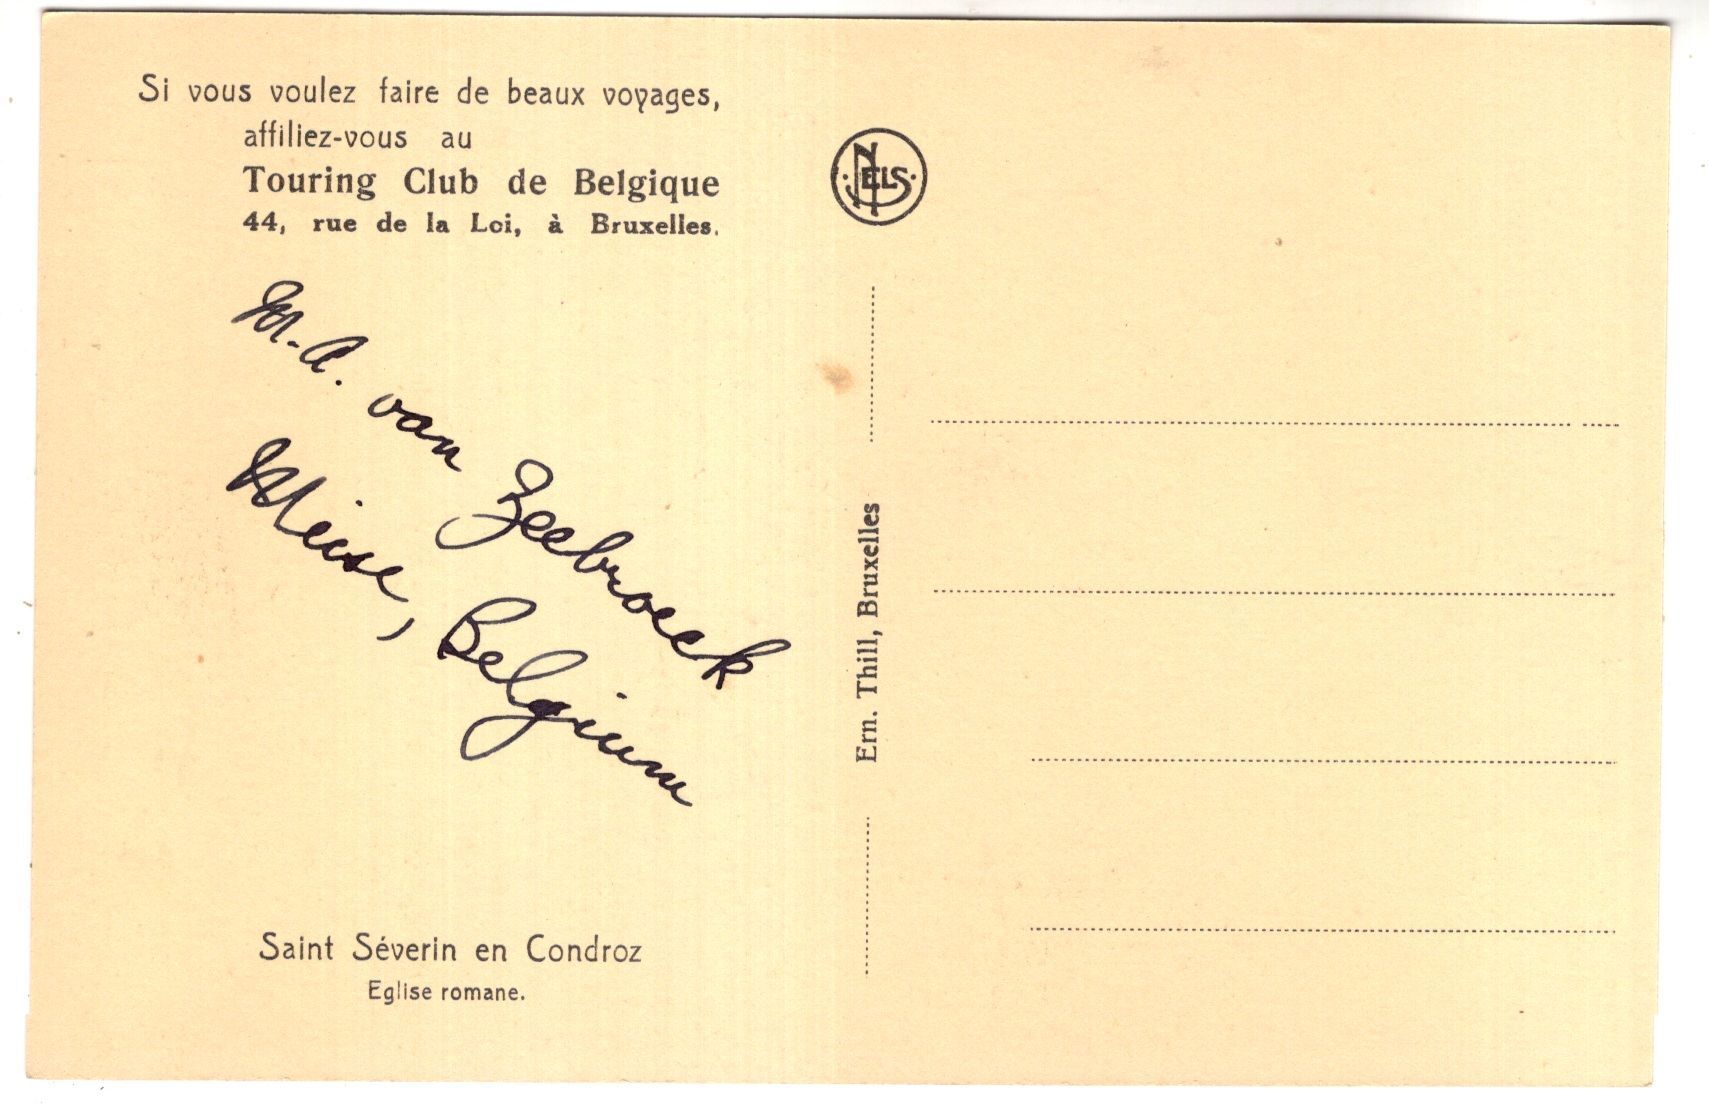 Si vous voulez faire de beaux voyages,
affiliez-vous au
Touring Club de Belgique
44, rue de la Loi, à Bruxelles.
NELS
M. A. van Zeebroeck
Meise, Belgium
Ern. Thill, Bruxelles
Saint Séverin en Condroz
Eglise romane.